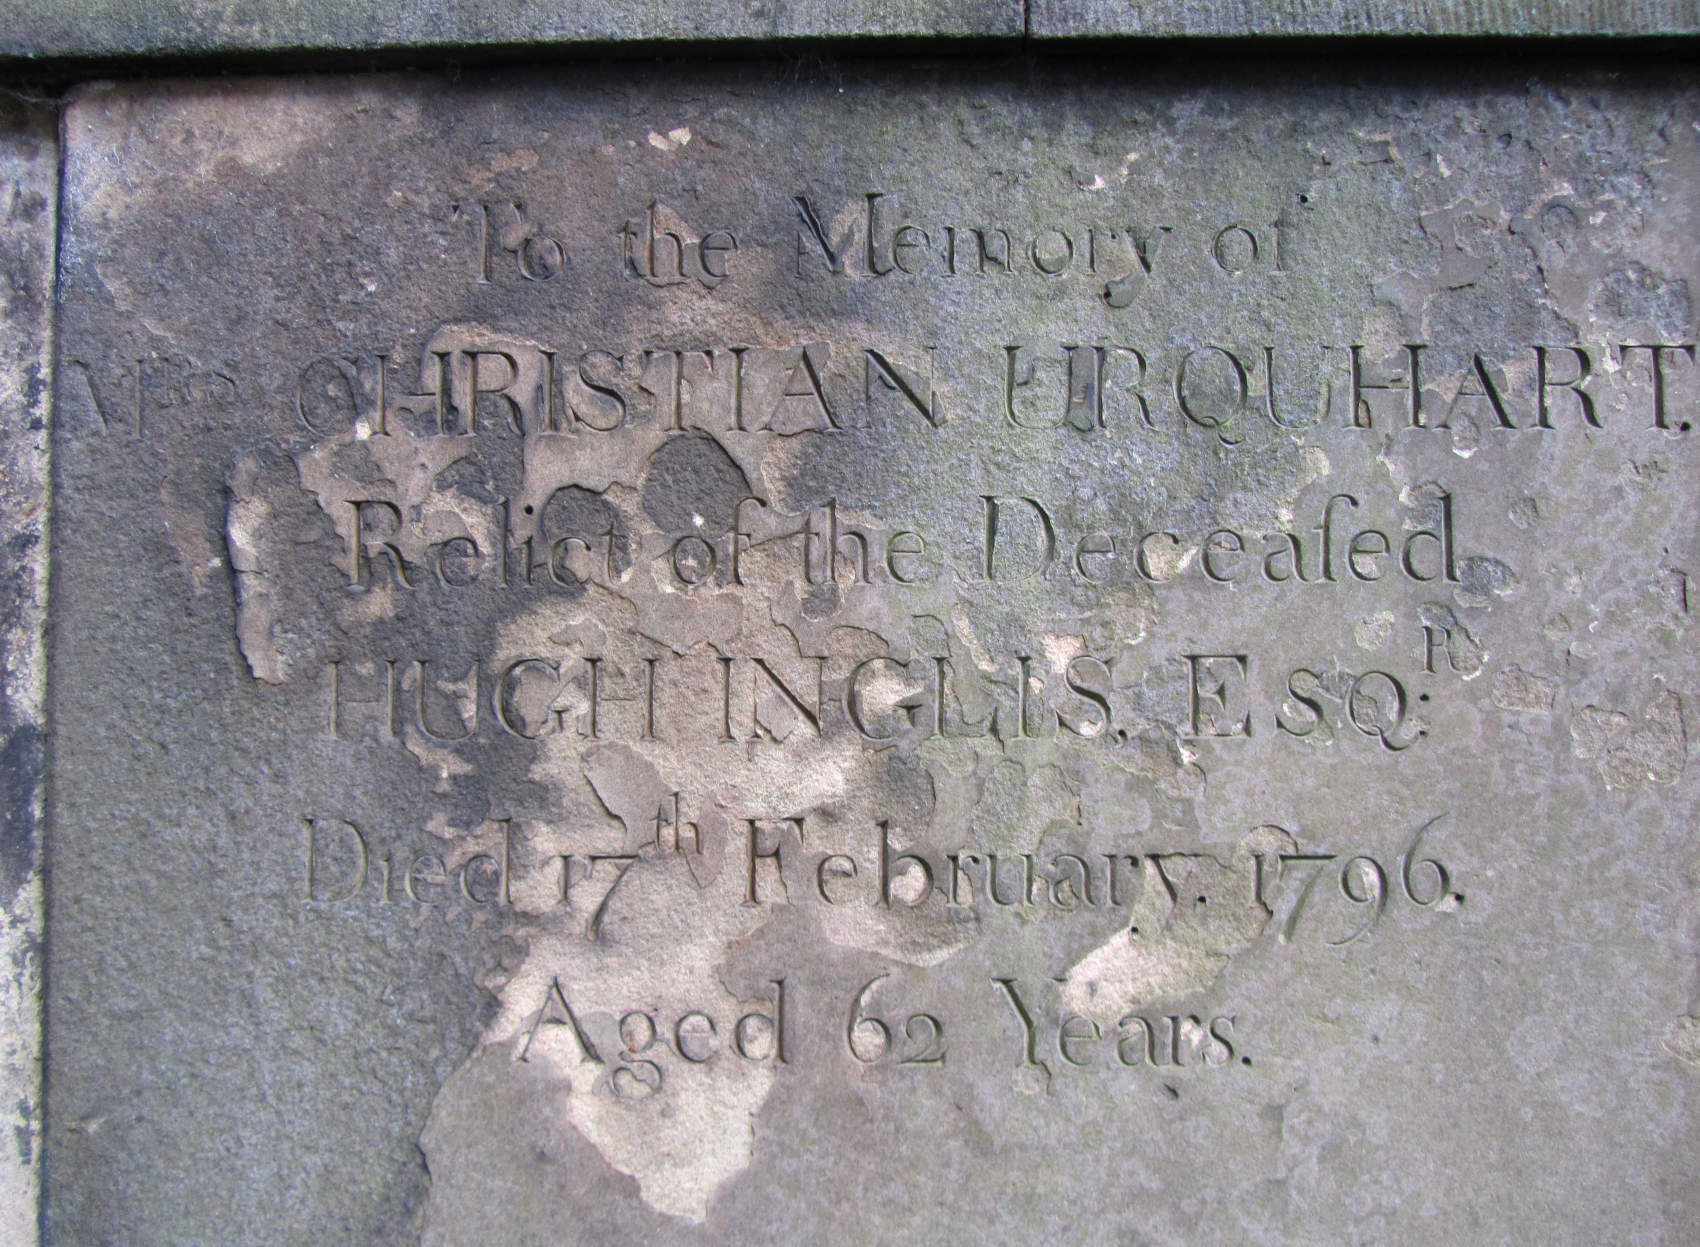 To the Memory of
Mrs CHRISTIAN URQUHART.
Relict of the Deceaſed
HUGH INGLIS, ESQR:
Died 17th February. 1796.
Aged 62 Years.